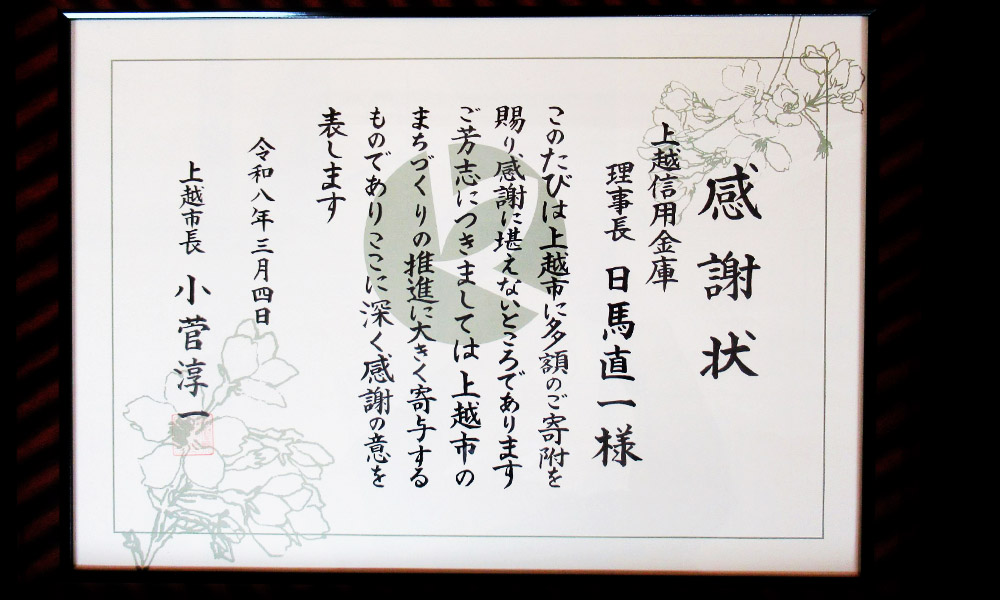 感謝状
上越信用金庫
理事長 日馬直一様
このたびは上越市に多額のご寄附を
賜り感謝に堪えないところであります
ご芳志につきましては上越市の
まちづくりの推進に大きく寄与する
ものでありここに深く感謝の意を
表します
令和八年三月四日
上越市長 小菅淳一